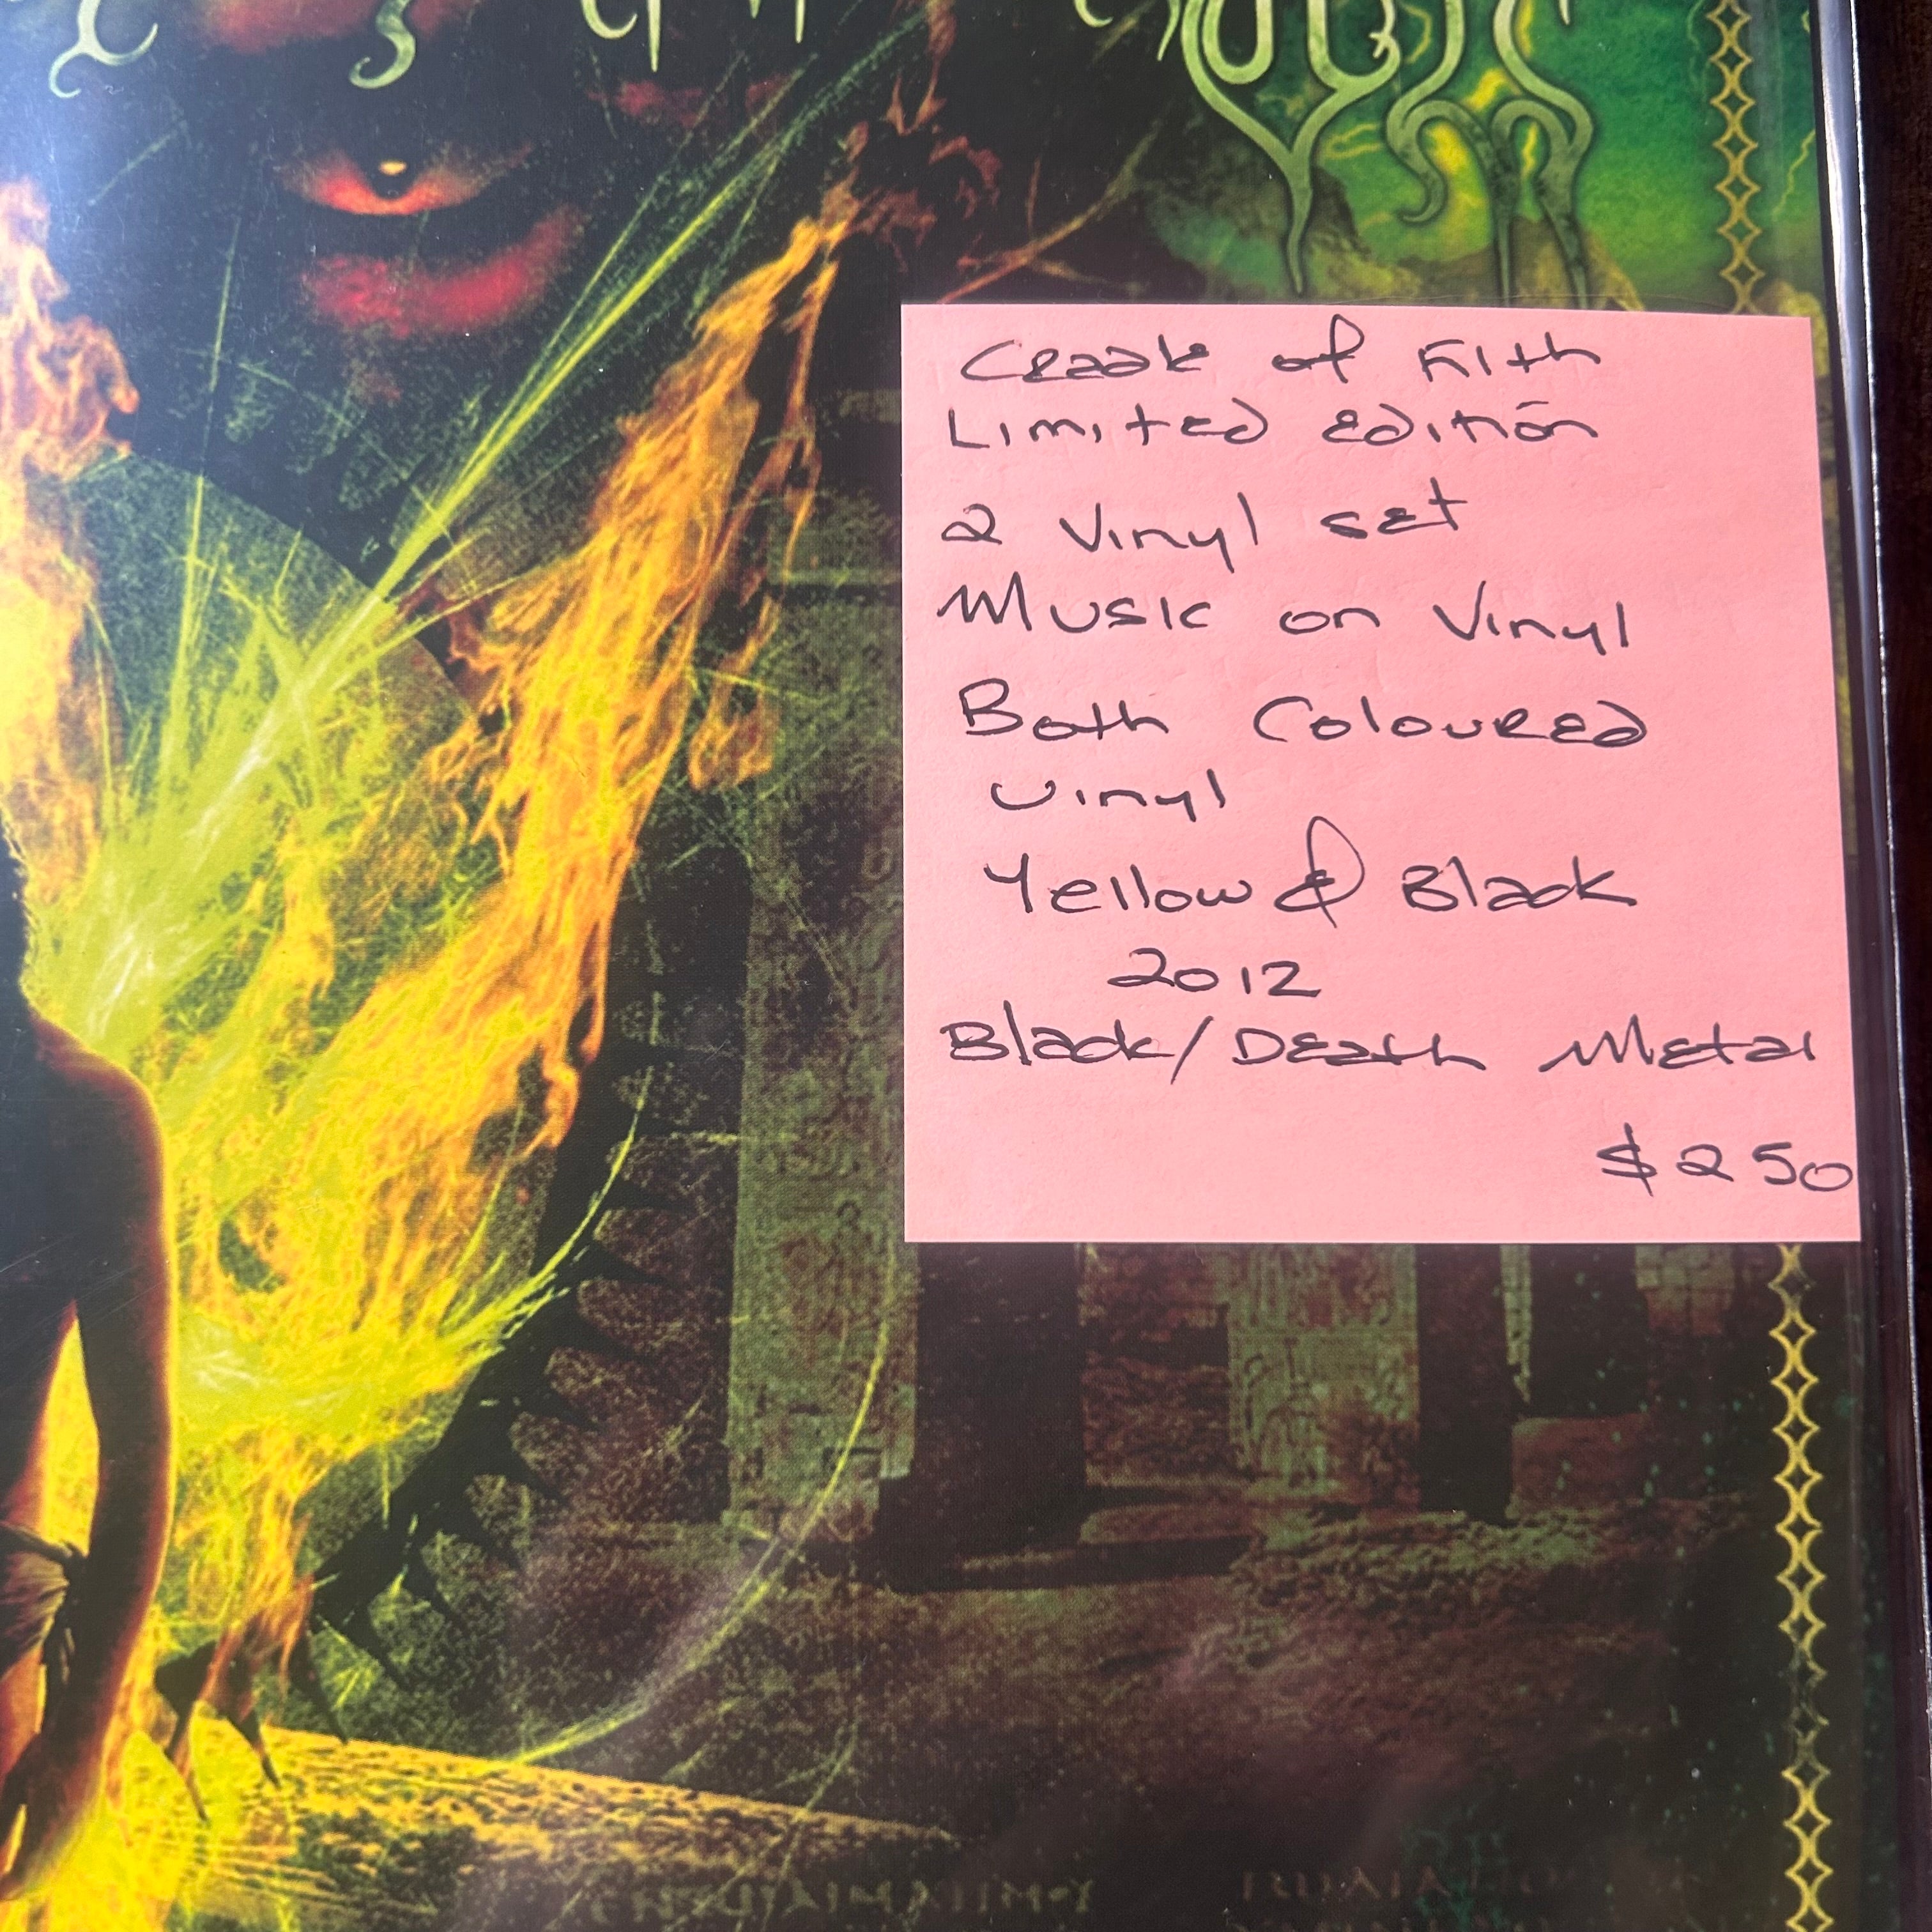 Cradle of Filth
Limited Edition
2 Vinyl set
Music on Vinyl
Both Coloured
Vinyl
Yellow & Black
2012
Black/Death Metal
$250